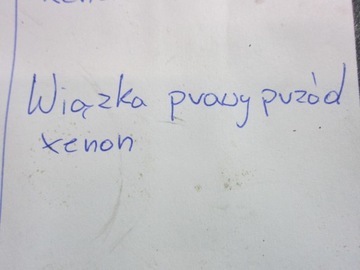 Wiązka prawy przód
xenon